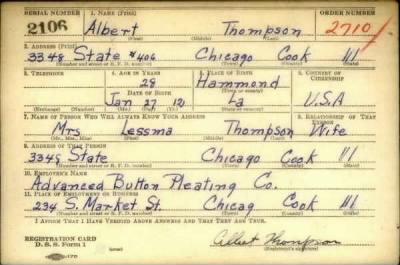 SERIAL NUMBER 1. NAME (Print) ORDER NUMBER
2106 Albert Thompson 2710
(First) (Middle) (Last)
2. ADDRESS (Print)
3348 State #406 Chicago Cook Ill
(Number and street or R. F. D. number) (Town) (County) (State)
3. TELEPHONE 4. AGE IN YEARS 5. PLACE OF BIRTH 6. COUNTRY OF CITIZENSHIP
28 Hammond
DATE OF BIRTH (Town or county)
Jan 27 12 La U.S.A
(Exchange) (Number) (Mo.) (Day) (Yr.) (State or country)
7. NAME OF PERSON WHO WILL ALWAYS KNOW YOUR ADDRESS 8. RELATIONSHIP OF THAT PERSON
Mrs Lessma Thompson Wife
(Mr., Mrs., Miss) (First) (Middle) (Last)
9. ADDRESS OF THAT PERSON
3348 State Chicago Cook Ill
(Number and street or R. F. D. number) (Town) (County) (State)
10. EMPLOYER'S NAME
Advanced Button Pleating Co.
11. PLACE OF EMPLOYMENT OR BUSINESS
234 S. Market St. Chicag Cook Ill
(Number and street or R. F. D. number) (Town) (County) (State)
I AFFIRM THAT I HAVE VERIFIED ABOVE ANSWERS AND THAT THEY ARE TRUE.
REGISTRATION CARD
D. S. S. Form 1 Albert Thompson
(Registrant's signature)